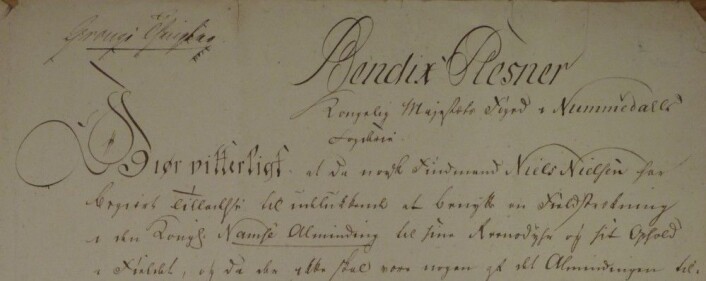 Bendix Plesner
Kongelig Majestæts Foged i Nummedalls
Fogderie
Giør vitterligt at da norsk Findmand Niels Nielsen har
begiert Tilladelse til udelukkende at benytte en Fieldstrekning
i den Kongl: Namse Alminding til sine Reensdyhr og sit Ophold
i Fieldet, og da der ikke skal være nogen af det Almindingen til-